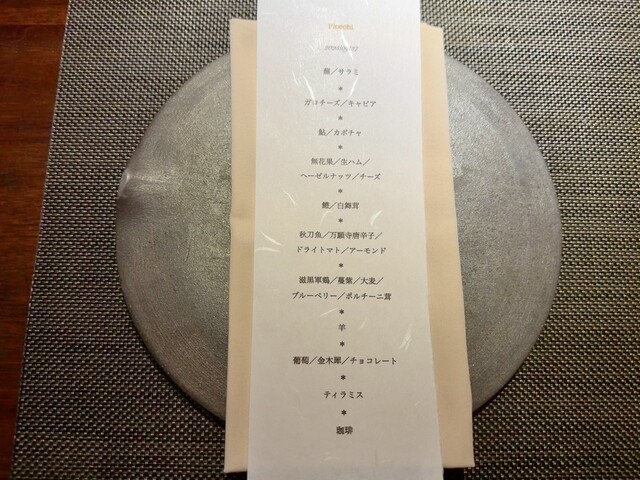 Fiocchi
蕪／サラミ
*
ガコチーズ／キャビア
*
鮎／カボチャ
*
無花果／生ハム／
ヘーゼルナッツ／チーズ
*
鱧／白舞茸
*
秋刀魚／万願寺唐辛子／
ドライトマト／アーモンド
*
滋黒軍鶏／蔓紫／大麦／
ブルーベリー／ポルチーニ茸
*
羊
*
葡萄／金木犀／チョコレート
*
ティラミス
*
珈琲